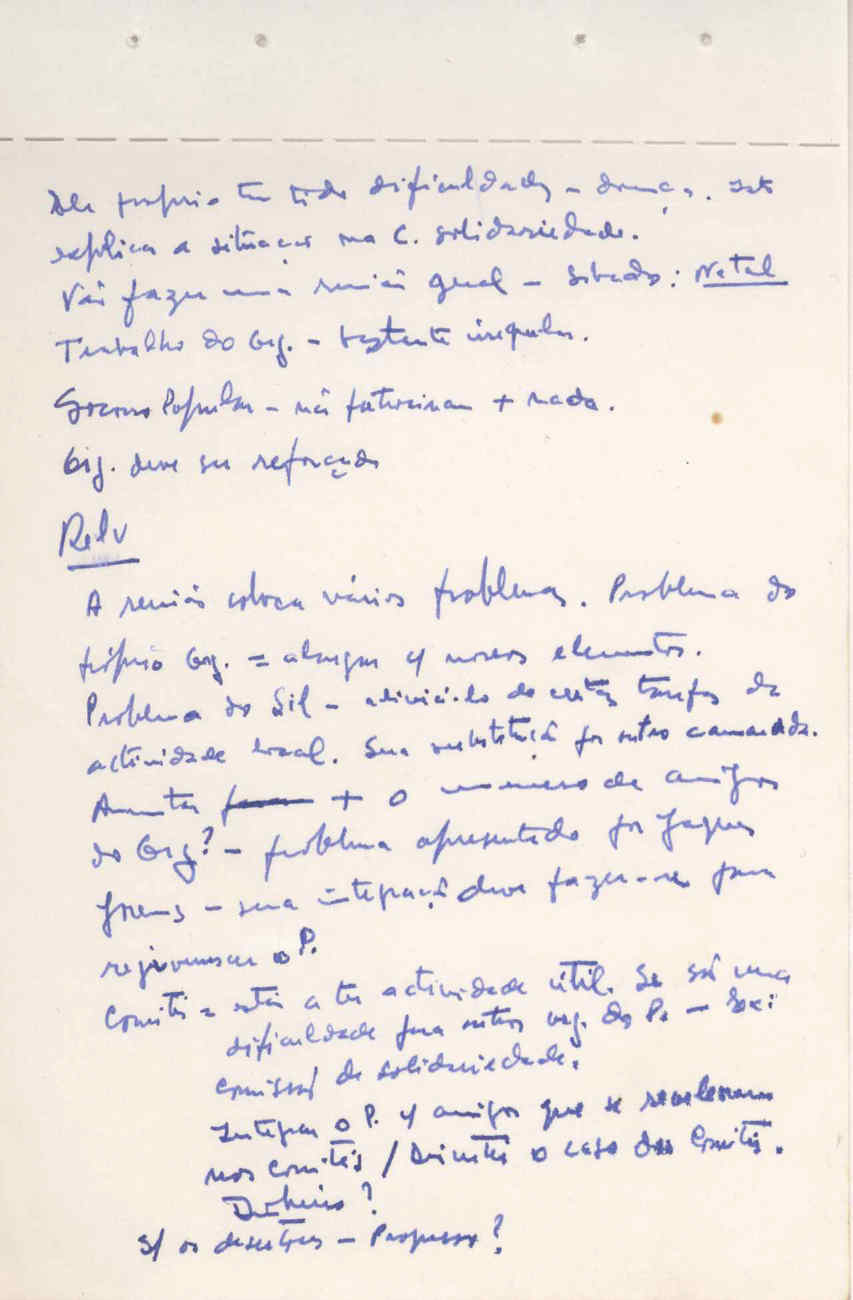 Ele próprio tem tido dificuldades - doença. Isto
explica a situação na C. solidariedade.
Vai fazer uma reunião geral - Sábado: Natal
Trabalho do Org. - bastante irregular.
Socorro Popular - não patrocinam + nada.
Org. deve ser reforçado
Relv
A reunião coloca vários problemas. Problema do
próprio Org. = alargar c/ novos elementos.
Problema do Gil - aliviá-lo de certas tarefas da
actividade local. Sua substituição por outro camarada.
Aumentar + o número de amigos
do Org? - problema apresentado por Jaques
Jovens - sua integração deve fazer-se para
rejuvenescer o P.
Comités = estão a ter actividade útil. Se são uma
dificuldade para outros org. do P. -
comissão de solidariedade.
Integrar o P. c/ amigos que se revelaram
nos comités / Discutir o caso dos Comités.
Dinheiro?
S/ os desertores - Progresso?